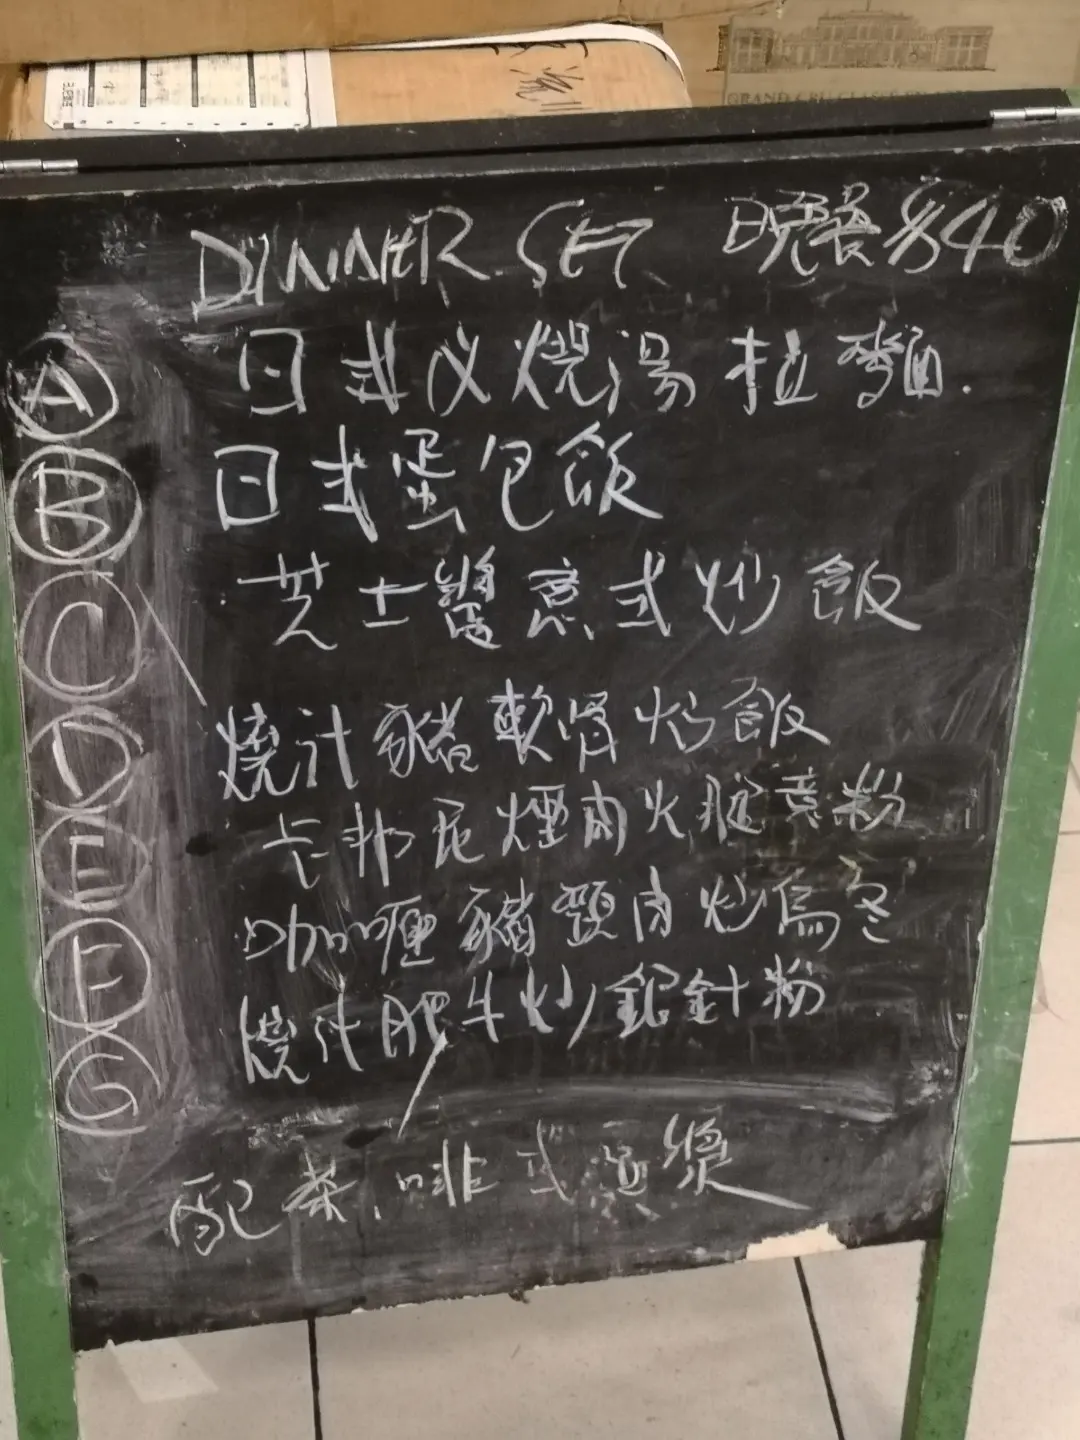 DINNER SET 晚餐 $40
A 日式叉燒湯拉麵.
B 日式蛋包飯
C 芝士醬意式炒飯
D 燒汁豬軟骨炒飯
E 卡邦尼煙肉火腿意粉
F 咖喱豬頸肉炒烏冬
G 燒汁肥牛炒銀針粉
配茶,啡或